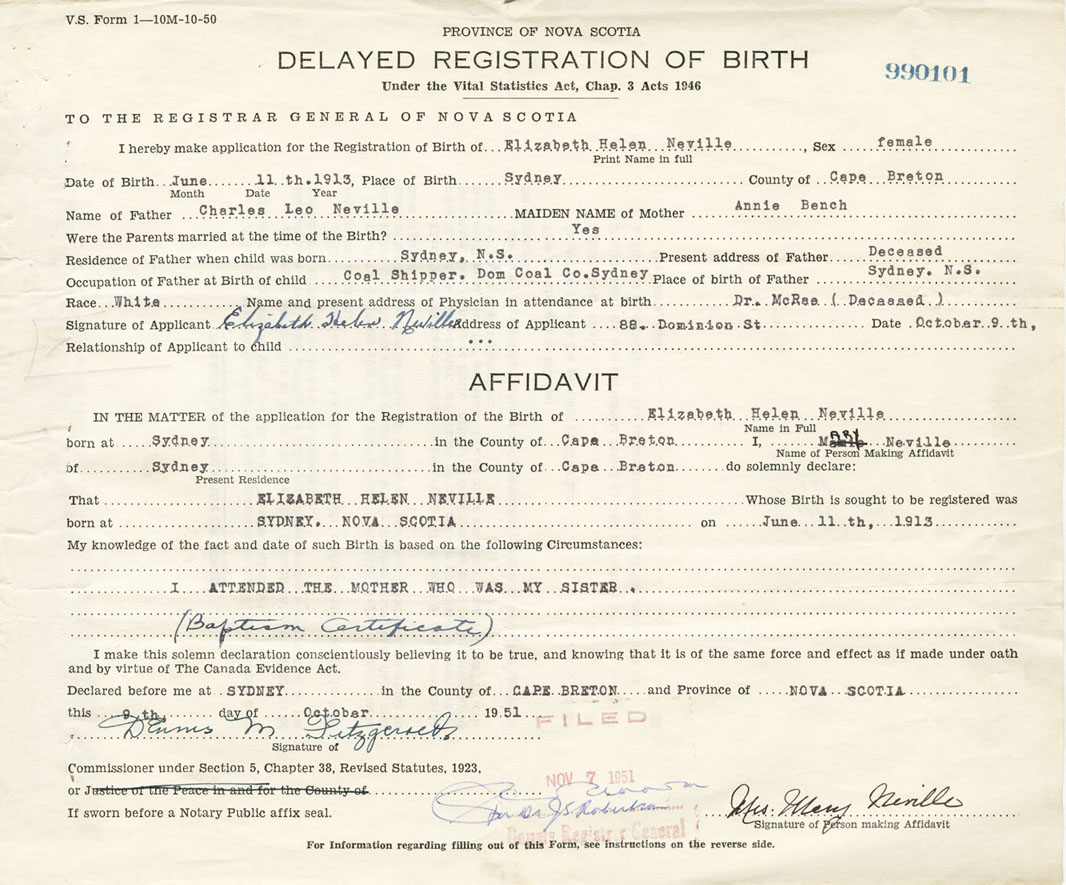 V.S. Form 1—10M-10-50
PROVINCE OF NOVA SCOTIA
DELAYED REGISTRATION OF BIRTH
990101
Under the Vital Statistics Act, Chap. 3 Acts 1946
TO THE REGISTRAR GENERAL OF NOVA SCOTIA
I hereby make application for the Registration of Birth of Elizabeth Helen Neville, Sex female
Print Name in full
Date of Birth June 11 th. 1913, Place of Birth Sydney County of Cape Breton
Month Date Year
Name of Father Charles Leo Neville MAIDEN NAME of Mother Annie Bench
Were the Parents married at the time of the Birth? Yes
Residence of Father when child was born Sydney, N.S. Present address of Father Deceased
Occupation of Father at Birth of child Coal Shipper. Dom Coal Co.Sydney Place of birth of Father Sydney. N.S.
Race White Name and present address of Physician in attendance at birth Dr. McRae ( Deceased )
Signature of Applicant Elizabeth Helen Neville Address of Applicant 88. Dominion St Date October 9 th,
Relationship of Applicant to child ...
AFFIDAVIT
IN THE MATTER of the application for the Registration of the Birth of Elizabeth Helen Neville
Name in Full
born at Sydney in the County of Cape Breton I, Mary Neville
Name of Person Making Affidavit
of Sydney in the County of Cape Breton do solemnly declare:
Present Residence
That ELIZABETH HELEN NEVILLE Whose Birth is sought to be registered was
born at SYDNEY. NOVA SCOTIA on June 11 th, 1913
My knowledge of the fact and date of such Birth is based on the following Circumstances:
I ATTENDED THE MOTHER WHO WAS MY SISTER .
(Baptism Certificate)
I make this solemn declaration conscientiously believing it to be true, and knowing that it is of the same force and effect as if made under oath
and by virtue of The Canada Evidence Act.
Declared before me at SYDNEY in the County of CAPE BRETON and Province of NOVA SCOTIA
this 9 th, day of October 1951
FILED
Dennis M Fitzgerald
Signature of
Commissioner under Section 5, Chapter 38, Revised Statutes, 1923,
NOV 7 1951
or Justice of the Peace in and for the County of
J S Robertson
Mrs. Mary Neville
If sworn before a Notary Public affix seal.
Deputy Registrar General
Signature of Person making Affidavit
For Information regarding filling out of this Form, see instructions on the reverse side.